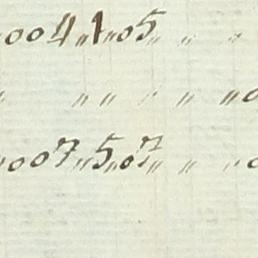 004〃1〃05〃 〃 〃
〃 〃 〃 〃 〃 〃0
007〃5〃07〃 〃 〃0